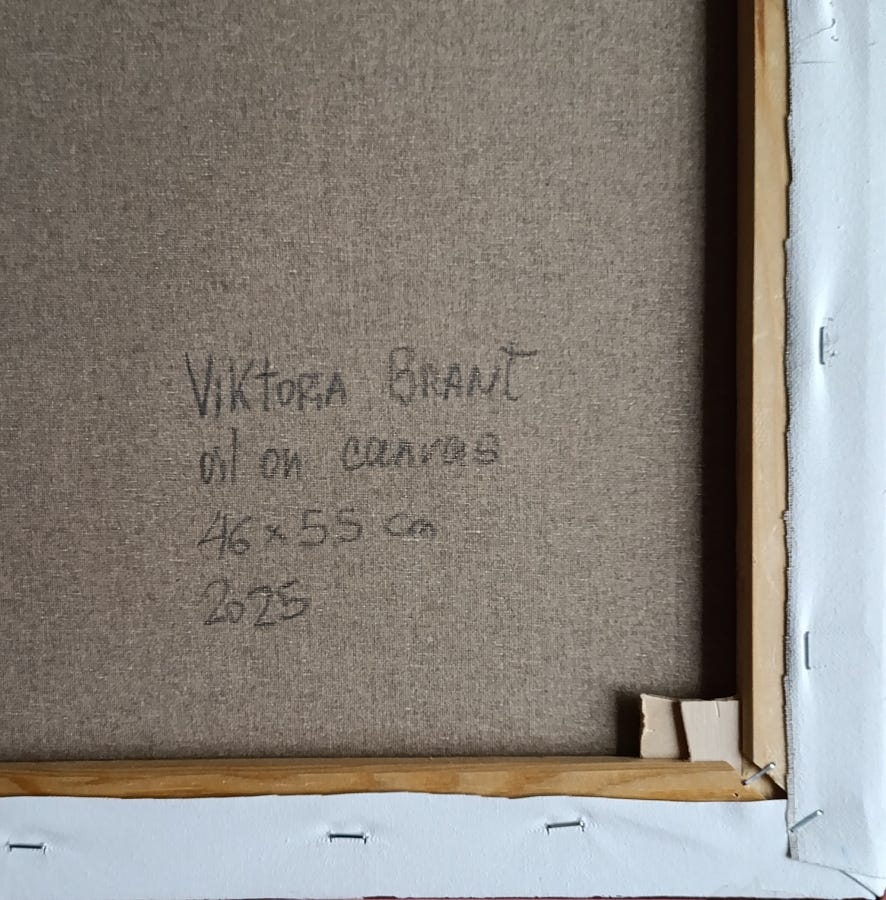 VIKTORIA BRANT
oil on canvas
46 x 55 cm
2025